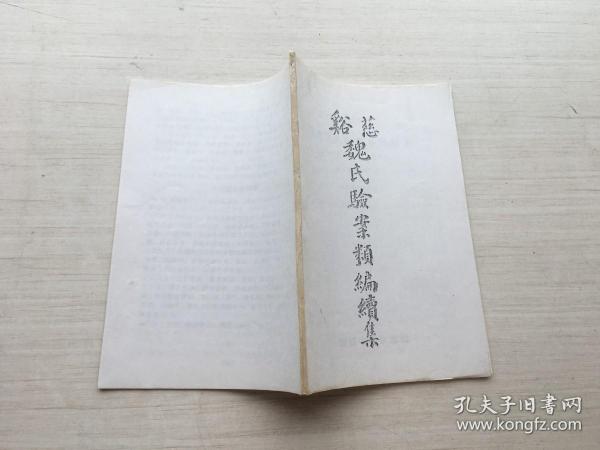 慈谿
魏氏驗案類編續集
孔夫子旧书网
www.kongfz.com